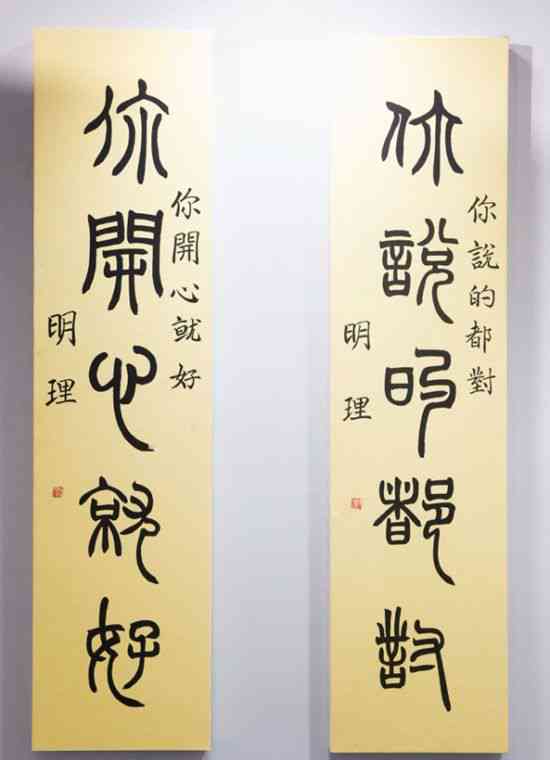 你說的都對
你說的都對
明理
你開心就好
你開心就好
明理